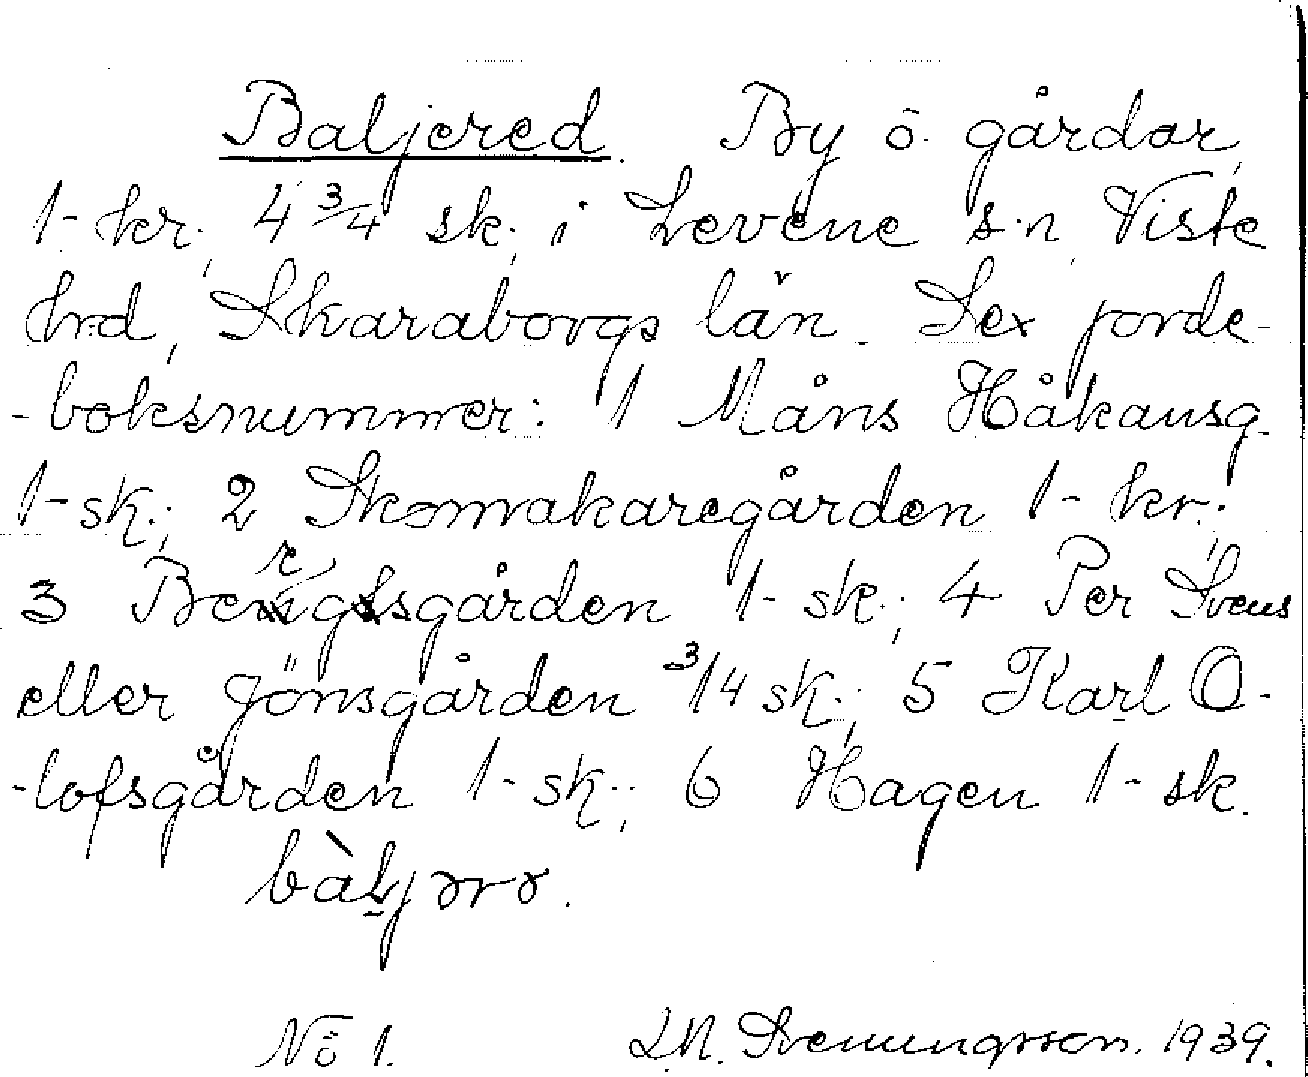 Baljered. By o. gårdar,
1- kr., 4 3/4 sk., i Levene s:n, Viste
hrd, Skaraborgs län. Sex jorde-
-boksnummer: 1 Måns Håkansg.
1- sk.; 2 Skomakaregården 1- kr.;
3 Bergsgården 1- sk.; 4 Per Svens
eller Jönsgården 3/4 sk.; 5 Karl O-
-lofsgården 1- sk.; 6 Hagen 1- sk.
bàljərə.
No 1. 1939.